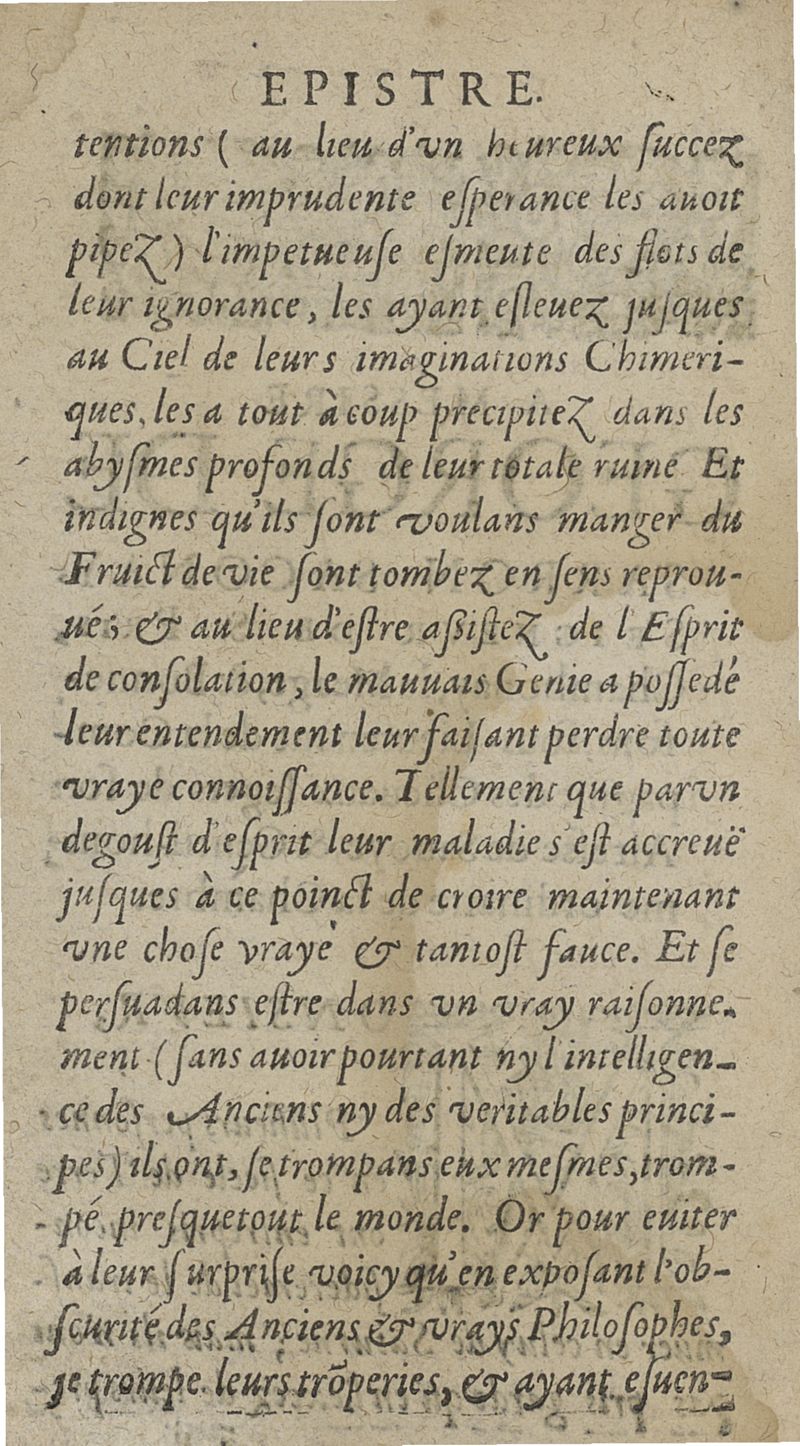 EPISTRE.
tentions ( au lieu d'vn heureux ſuccez
dont leur imprudente eſperance les auoit
pipez ) l'impetueuſe eſmeute des flots de
leur ignorance, les ayant eſleuez juſques
au Ciel de leurs imaginations Chimeri-
ques, les a tout à coup precipitez dans les
abyſmes profonds de leur totale ruine Et
indignes qu'ils ſont voulans manger du
Fruict de vie ſont tombez en ſens reprou-
ué; & au lieu d'eſtre aßiſtez de l'Eſprit
de conſolation, le mauuais Genie a poſſedé
leur entendement leur faiſant perdre toute
vraye connoiſſance. Tellement que par vn
degouſt d'eſprit leur maladie s'eſt accreuë
juſques à ce poinct de croire maintenant
vne choſe vraye & tantoſt fauce. Et ſe
perſuadans eſtre dans vn vray raiſonne-
ment (ſans auoir pourtant ny l'intelligen-
ce des Anciens ny des veritables princi-
pes) ils ont, ſe trompans eux meſmes, trom-
pé preſque tout le monde. Or pour euiter
à leur ſurpriſe voicy qu'en expoſant l'ob-
ſcurité des Anciens & vrays Philoſophes,
je trompe leurs trõperies, & ayant eſuen-